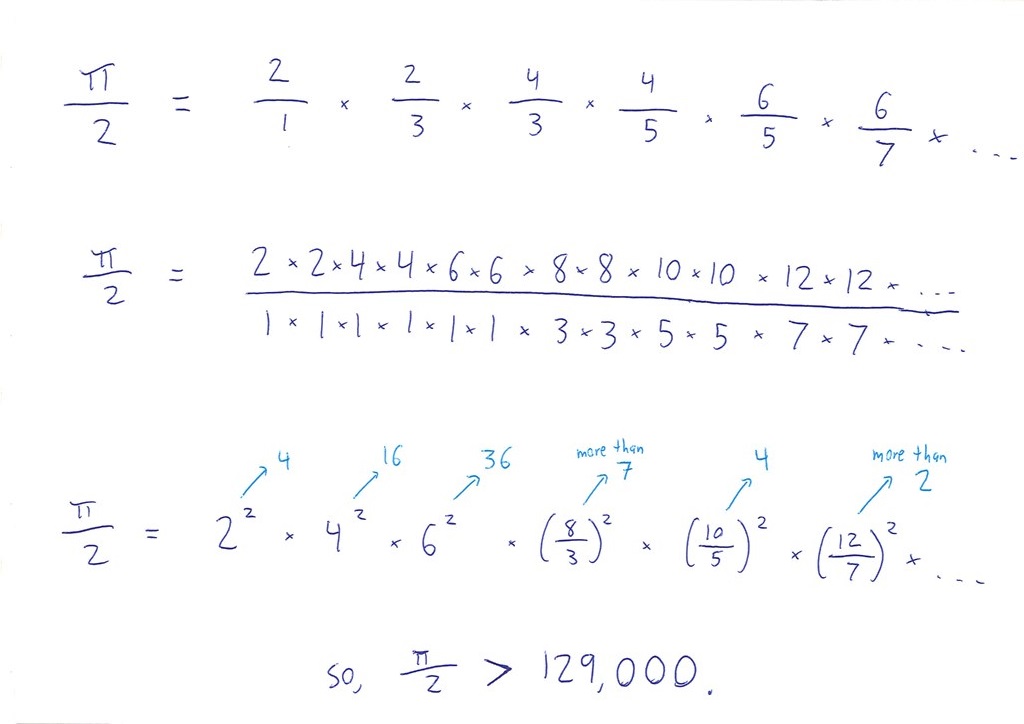 π/2 = 2/1 × 2/3 × 4/3 × 4/5 × 6/5 × 6/7 × ...
π/2 = 2 × 2 × 4 × 4 × 6 × 6 × 8 × 8 × 10 × 10 × 12 × 12 × ... / 1 × 1 × 1 × 1 × 1 × 1 × 3 × 3 × 5 × 5 × 7 × 7 × ...
4 16 36 more than 7 4 more than 2
π/2 = 2² × 4² × 6² × (8/3)² × (10/5)² × (12/7)² × ...
so, π/2 > 129,000.